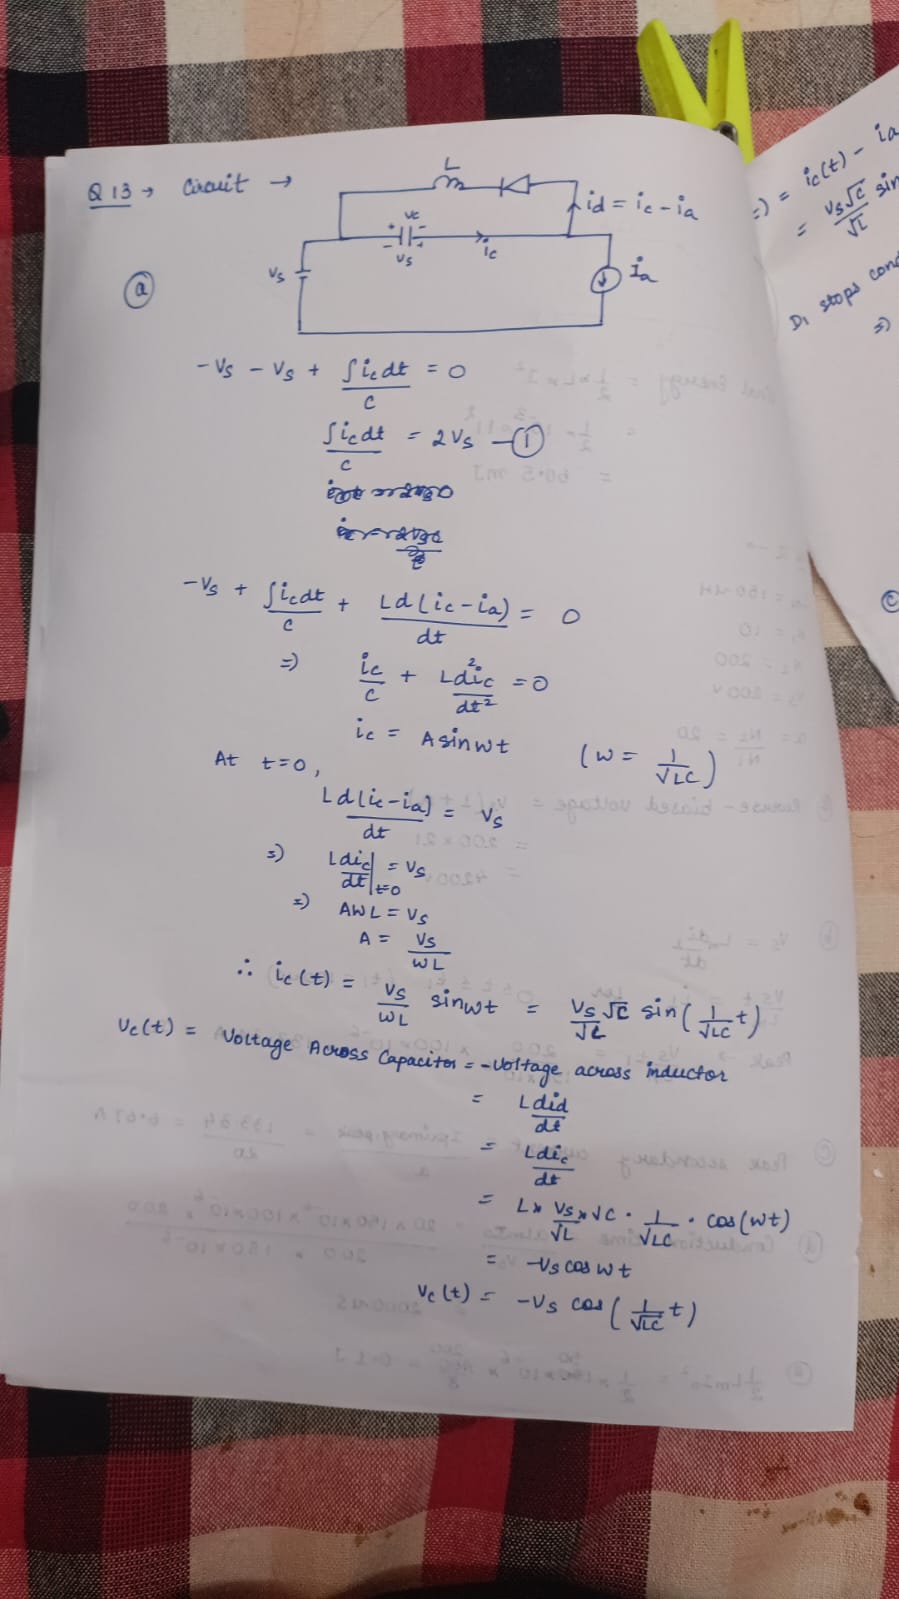 Q 13 → Circuit →
L
id = ic - ia
+ Vc -
- Vs +
ic
Vs
Ia
(a)
-Vs - Vs + ∫ic dt/C = 0
∫ic dt/C = 2Vs —(1)
-Vs + ∫ic dt/C + Ld(ic-ia)/dt = 0
=) ic/C + Ld²ic/dt² = 0
ic = A sin wt (w = 1/√LC)
At t=0,
Ld(ic-ia)/dt = Vs
=) Ldic/dt|t=0 = Vs
=) AWL = Vs
A = Vs/WL
∴ ic(t) = Vs/WL sin wt = Vs√C/√L sin(1/√LC t)
Vc(t) = Voltage Across Capacitor = -Voltage across inductor
= Ldid/dt
= Ldic/dt
= L× Vs/√L ×√C · 1/√LC · cos(wt)
= -Vs cos wt
Vc(t) = -Vs cos(1/√LC t)
=) = ic(t) - ia
= Vs√C/√L sin
D1 stops
=)
(c)